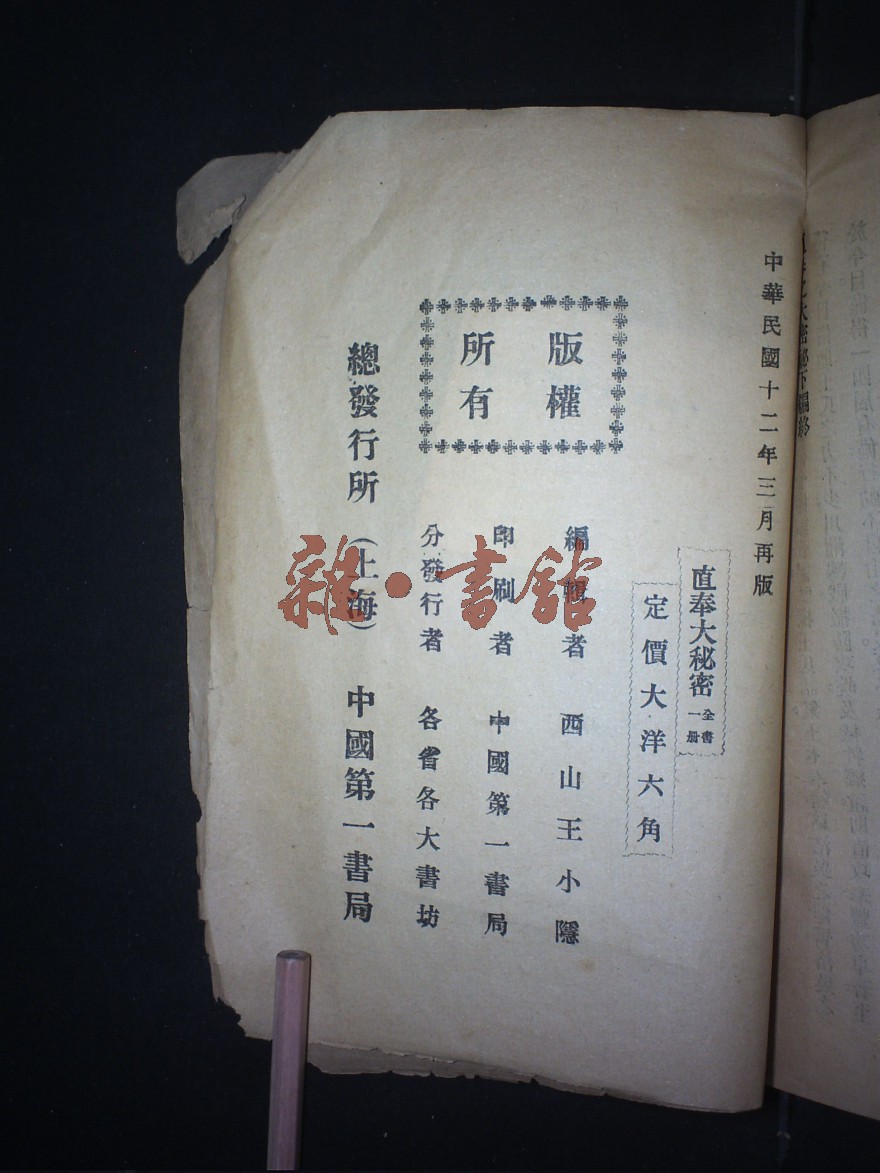 中華民國十二年三月再版
直奉大秘密 全書一册
定價大洋六角
版權
所有
編輯者 西山王小隱
印刷者 中國第一書局
分發行者 各省各大書坊
總發行所 (上海) 中國第一書局
雜·書館